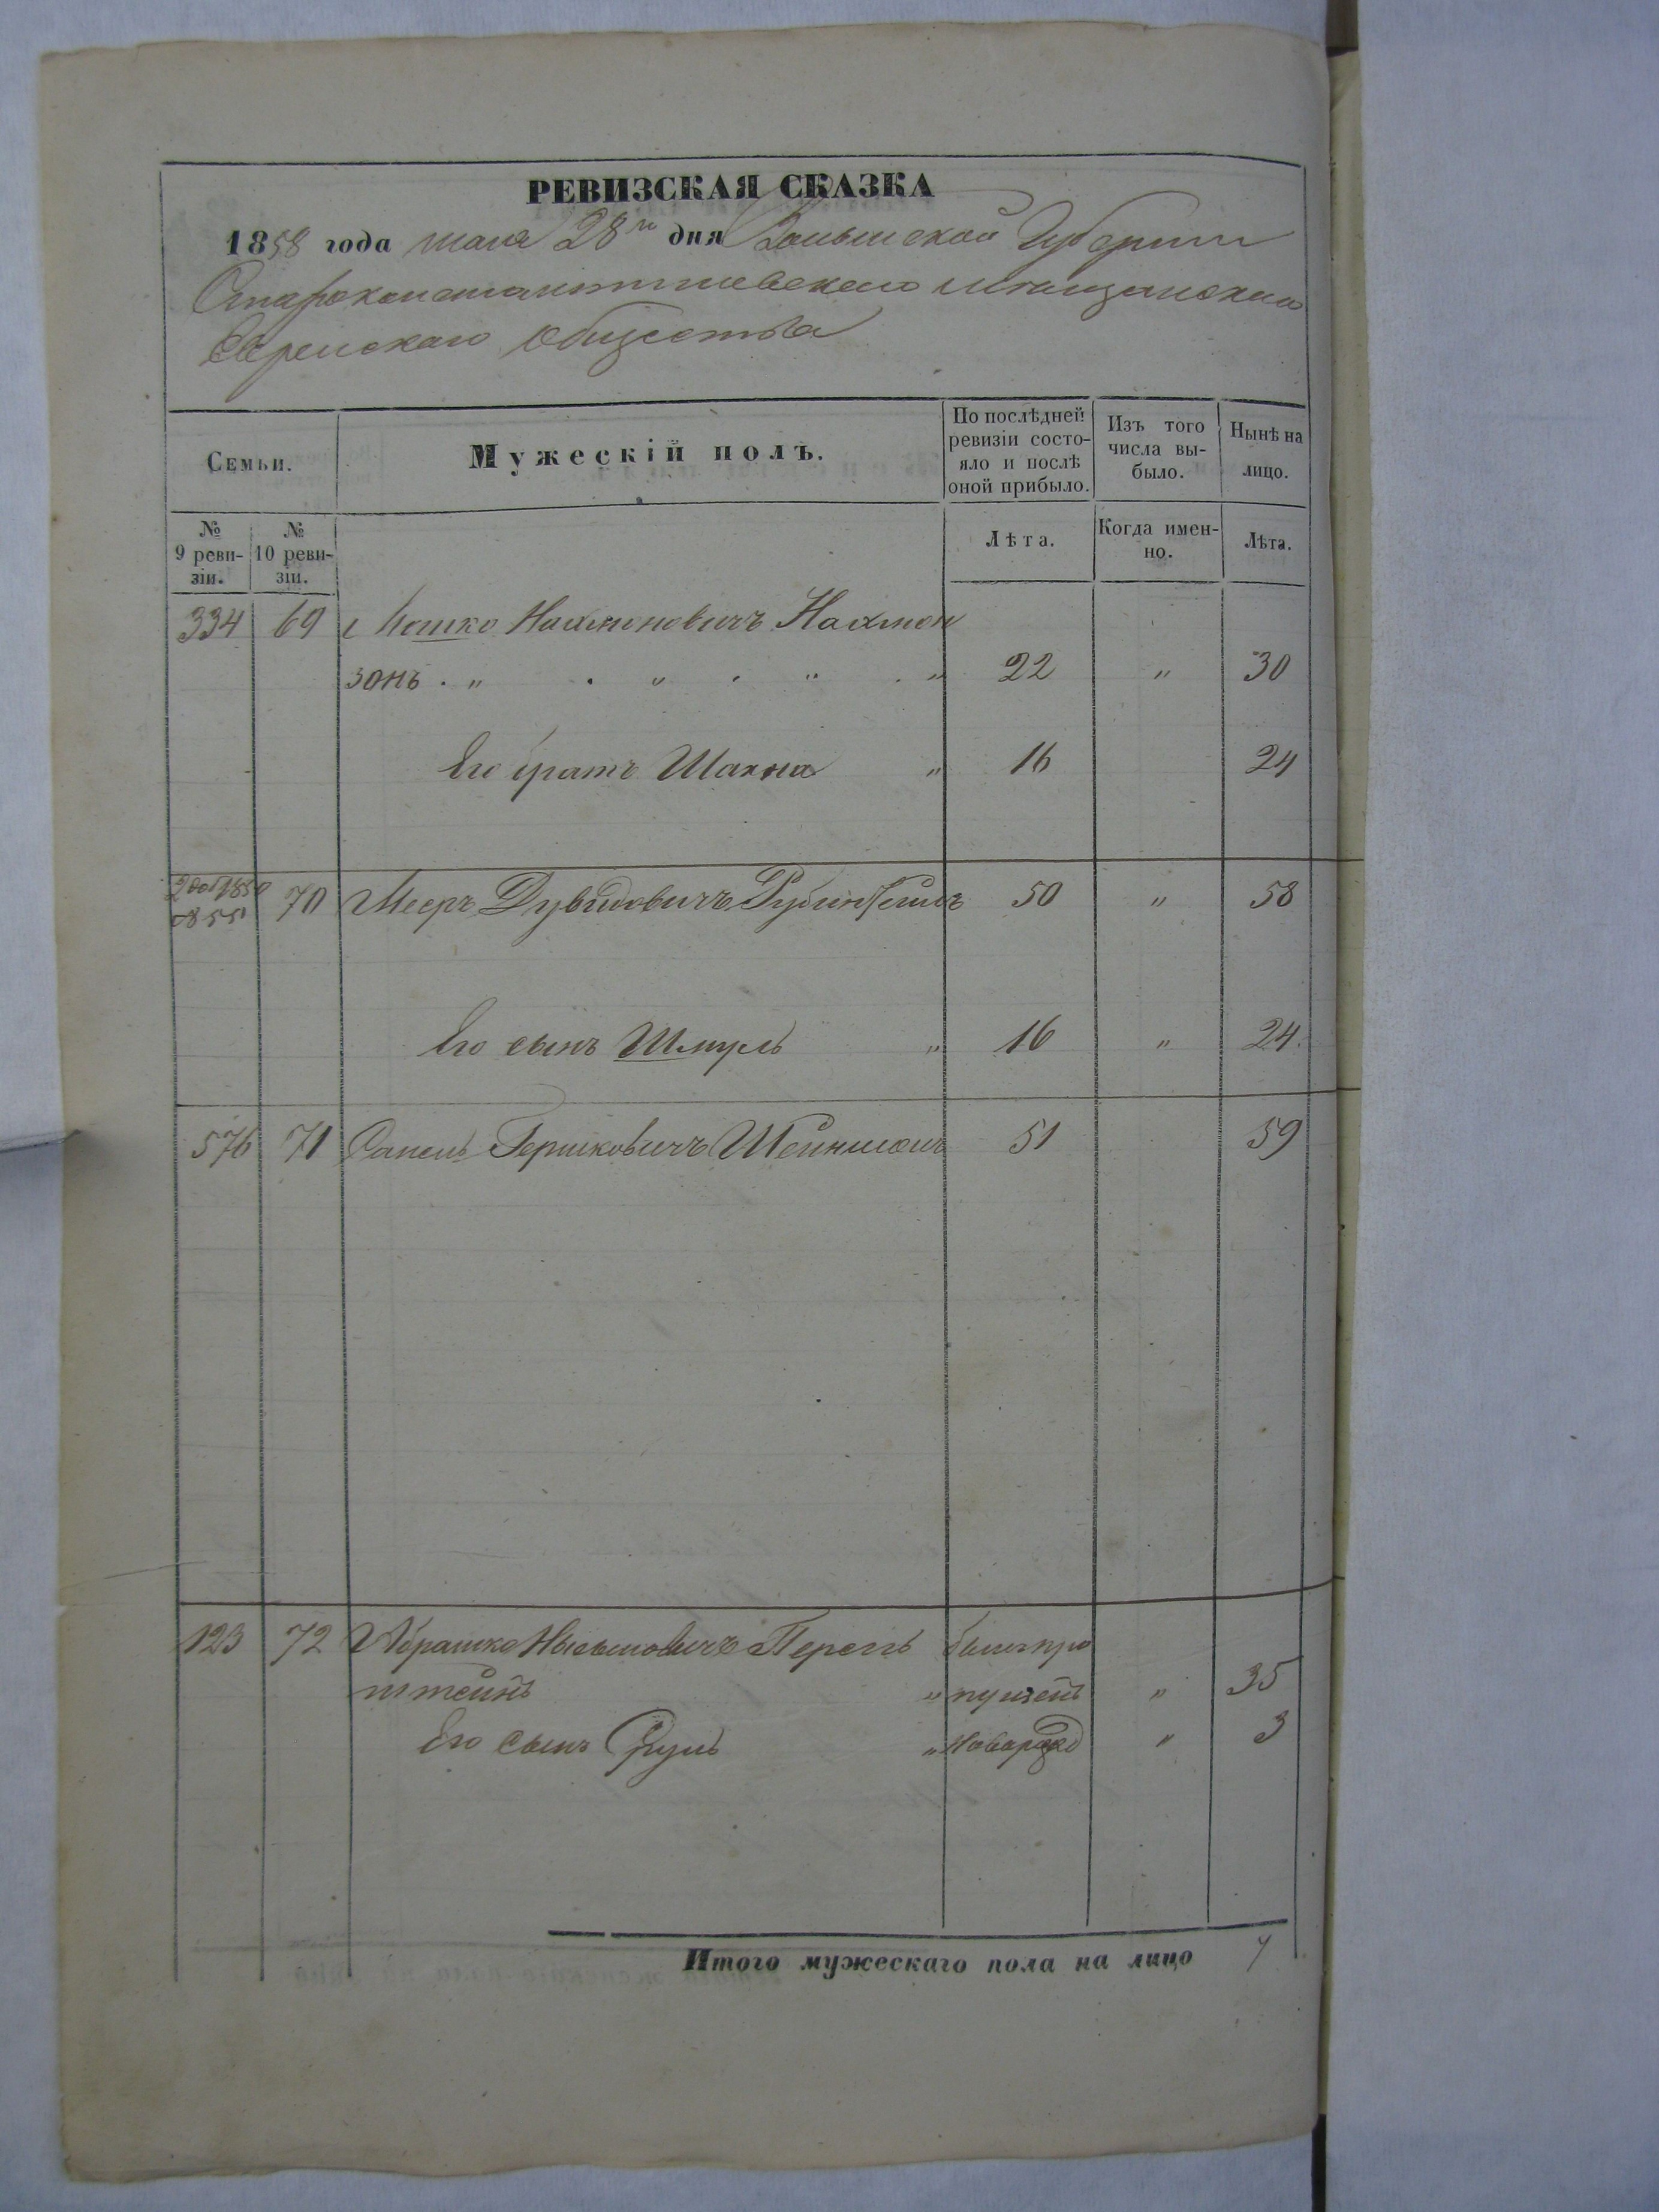 РЕВИЗСКАЯ СКАЗКА
1858 года мая 28го дня Волынской Губернии
Староконстантиновскаго мещанскаго
Еврейскаго Общества
Семьи.
Мужескій полъ.
По послѣдней ревизіи состо-яло и послѣ оной прибыло.
Изъ того числа вы-было.
Нынѣ на лицо.
№ 9 реви-зіи.
№ 10 реви-зіи.
Лѣта.
Когда имен-но.
Лѣта.
334 69 Мошко Нахмоновичъ Нахмон
зонъ " 22 " 30
Его братъ Шахна " 16 24
1850
1855 70 Мееръ Дувидовичъ 50 " 58
Его сынъ Шмуль " 16 " 24
576 71 Гершковичъ Шейнманъ 51 59
123 72 Абрашко Перель былъ про
штейнъ " пущенъ " 35
Его сынъ Сруль " Новорож " 3
Итого мужескаго пола на лицо 7